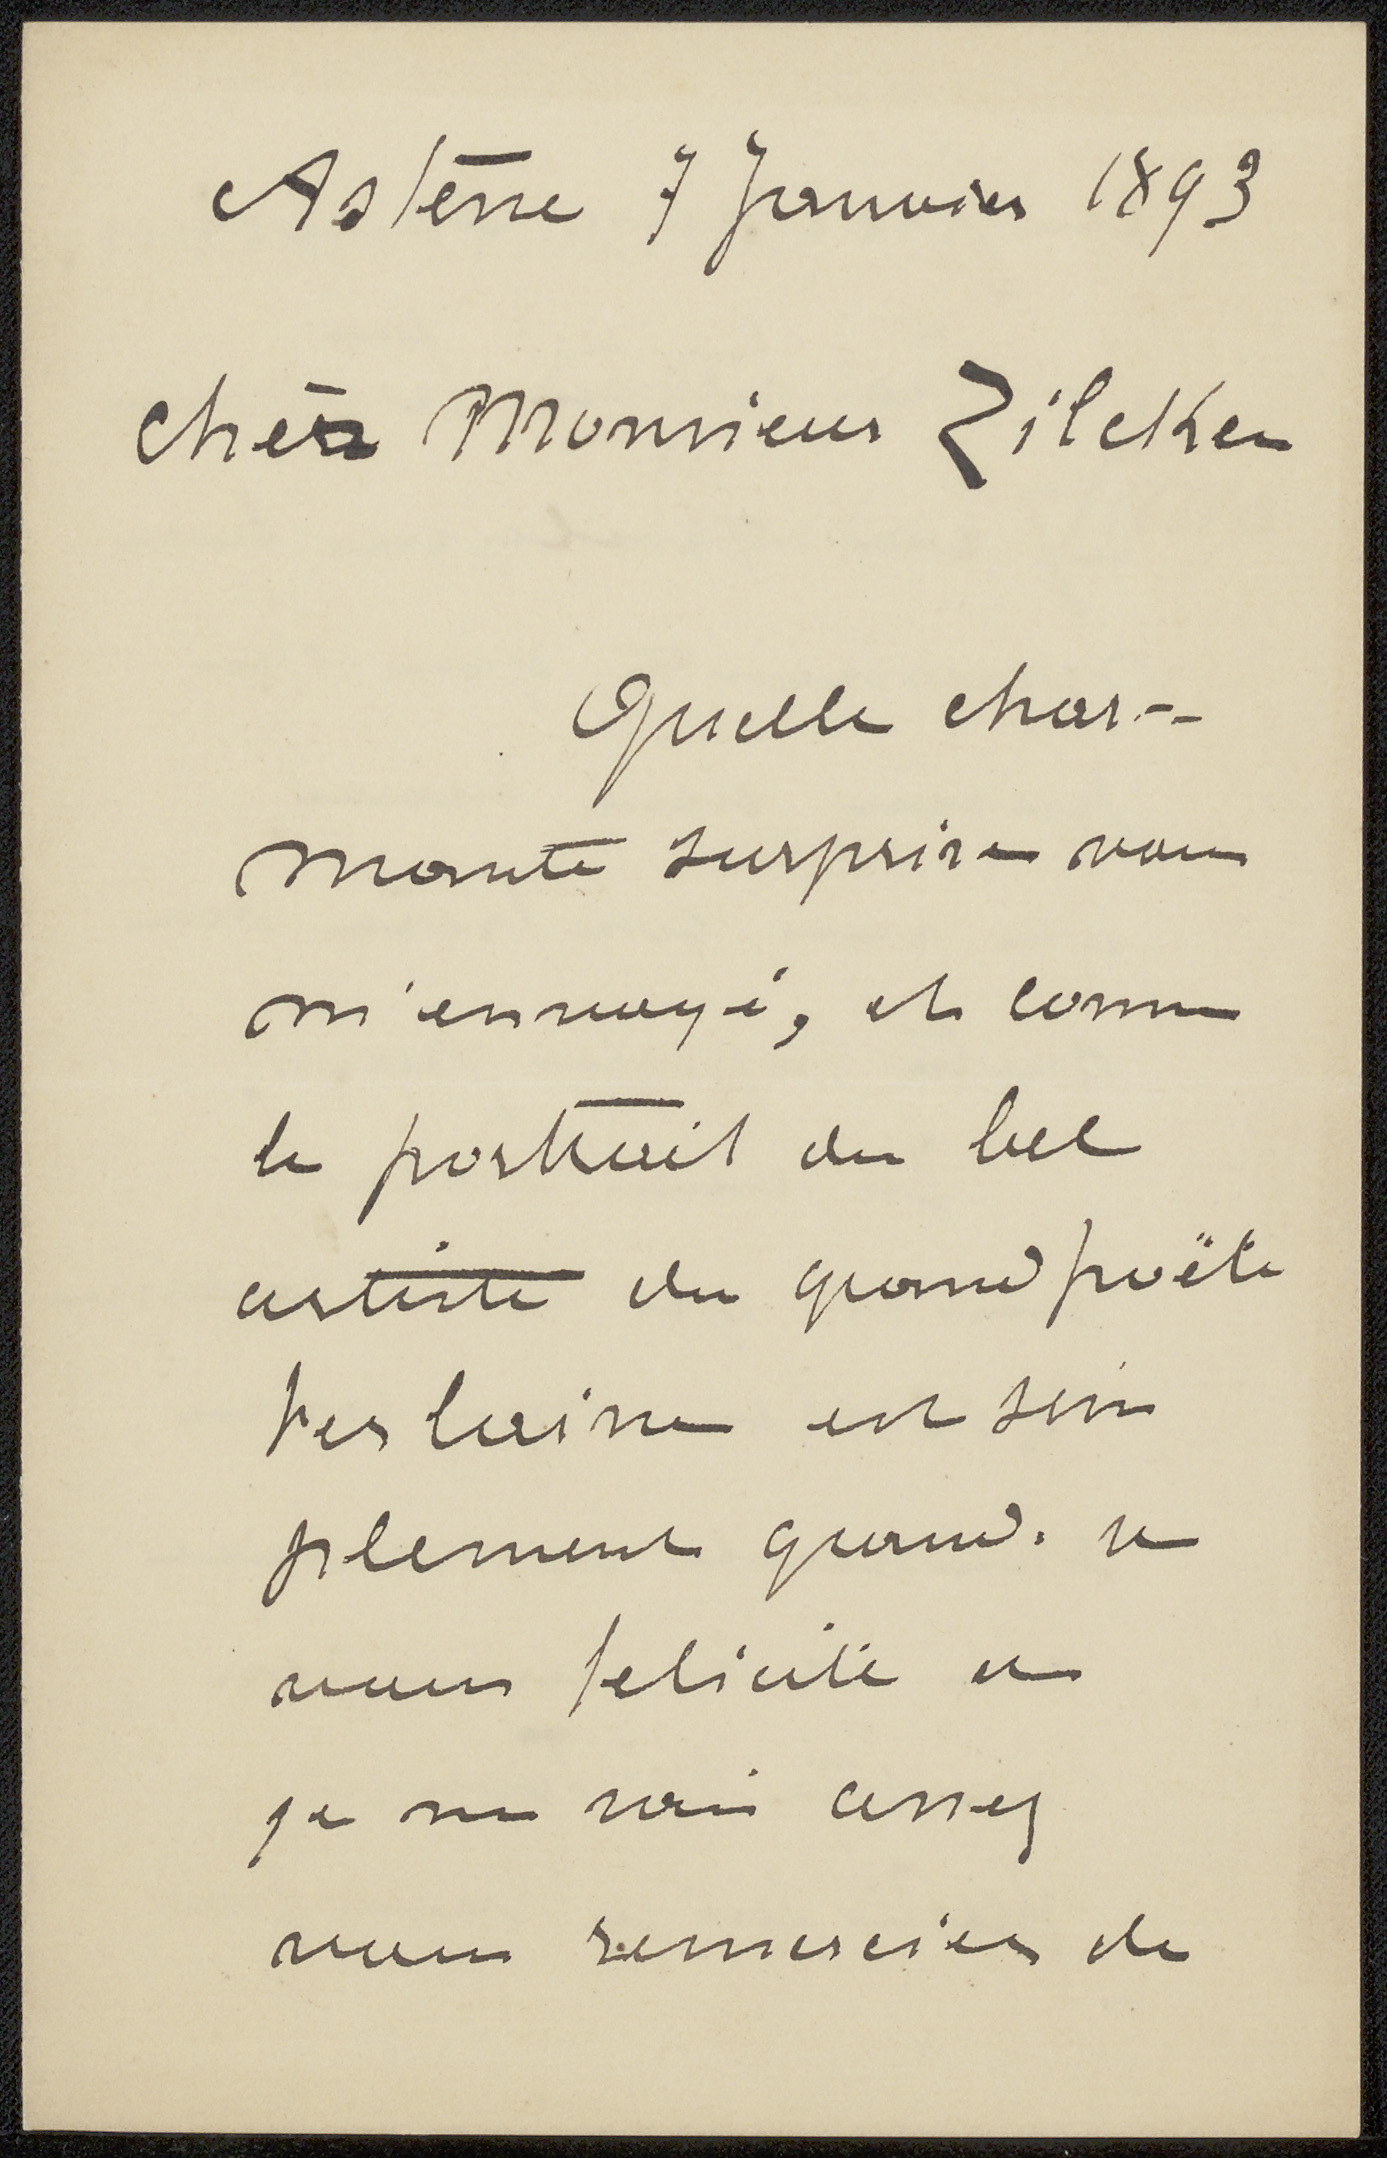 Astene 7 Janvier 1893
Cher Monsieur Zilcken
Quelle char-
mante surprise vous
m'envoyé, et comme
le portrait du bel
artiste du grand poëte
Verlaine est sim
plement grand. je
vous felicite et
je ne sais assez
vous remercier de